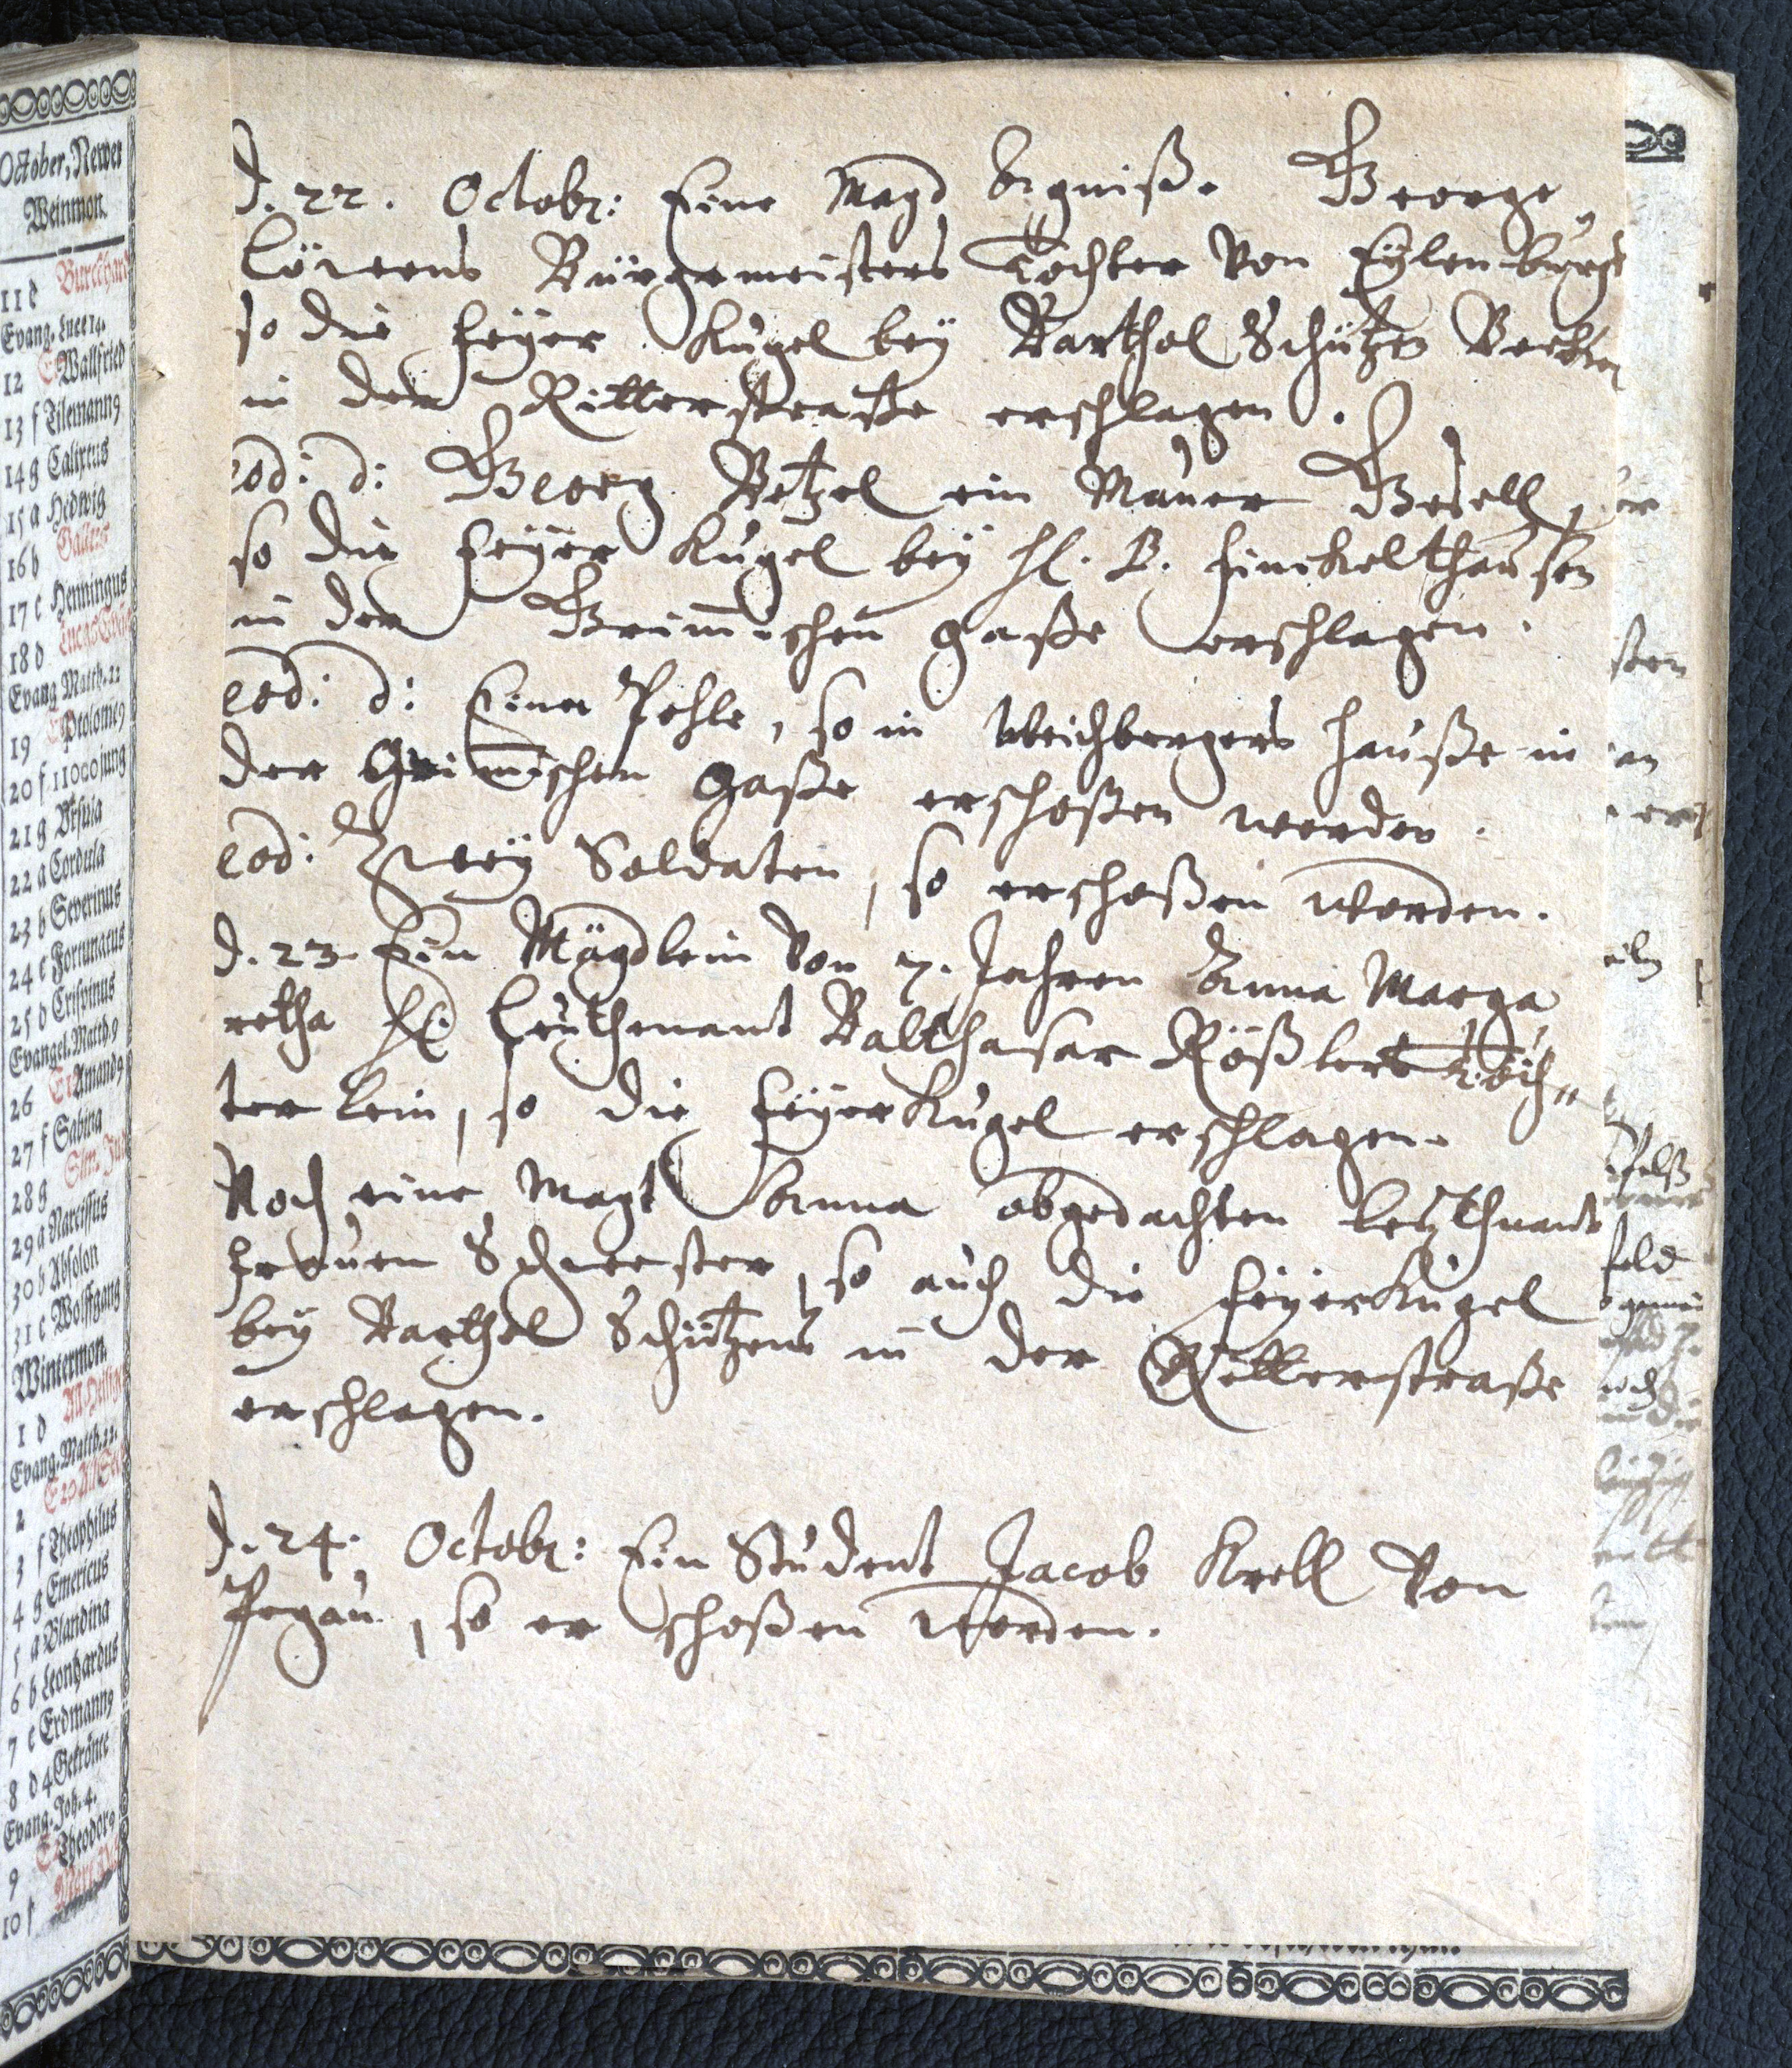 October, Newer
Weinmon.
11 d Burckhard
Evang. Luce 14.
12 E Wallfried
13 f Tilemann9
14 g Calixtus
15 a Hedwig
16 b Gallus
17 c Henningus
18 d Lucas
Evang Matth. 22
19 Ptolome9
20 f 11000 jung
21 g Ursula
22 a Cordula
23 b Severinus
24 c Fortunatus
25 d Crispinus
Evangel. Matth. 9
26 Amand9
27 f Sabina
28 g Sim. Jud
29 a Narcissus
30 b Absolon
31 c Wolffgang
Wintermon.
1 d All. Heilige
Evang. Matth. 22.
2
3 f Theophilus
4 g Emericus
5 a Blandina
6 b Leonhardus
7 c Erdmann9
8 d 4 Gekrönte
Evang. Joh. 4.
9 Theodor9
10 f
d. 22. Octobr: Eine Magd Agniß. George
Löweens Bürgemeisters Tochter von Eylenburgk
so die feyer Kugel bey Barthol Schützen Becken
in der Ritterstraße erschlagen.
eod: d: Georg Betzel ein Maurer Gesell,
so die feyer Kugel bey H. B. Finckelthausen
in der Grim̄ischen gaße erschlagen.
eod: d: Einer Pohle, so in Weichbergers hauße in
der Grim̄ischen Gaße erschoßen worden.
eod: Zweÿ Soldaten, so erschoßen worden.
d. 23. Ein Mägdlein von 7. Jahren Anna Marga
retha H. Leuthenant Balthasar Rößlers Töch"
terlein, so die feyerKugel erschlagen.
Noch eine Magt Anna obgedachten Leuthnant
frauen Schwester, so auch die feyerKugel
bey Barthel Schützens in der Ritterstraße
erschlagen.
d. 24. Octobr: Ein Student Jacob Krell von
Pegau, so erschoßen worden.